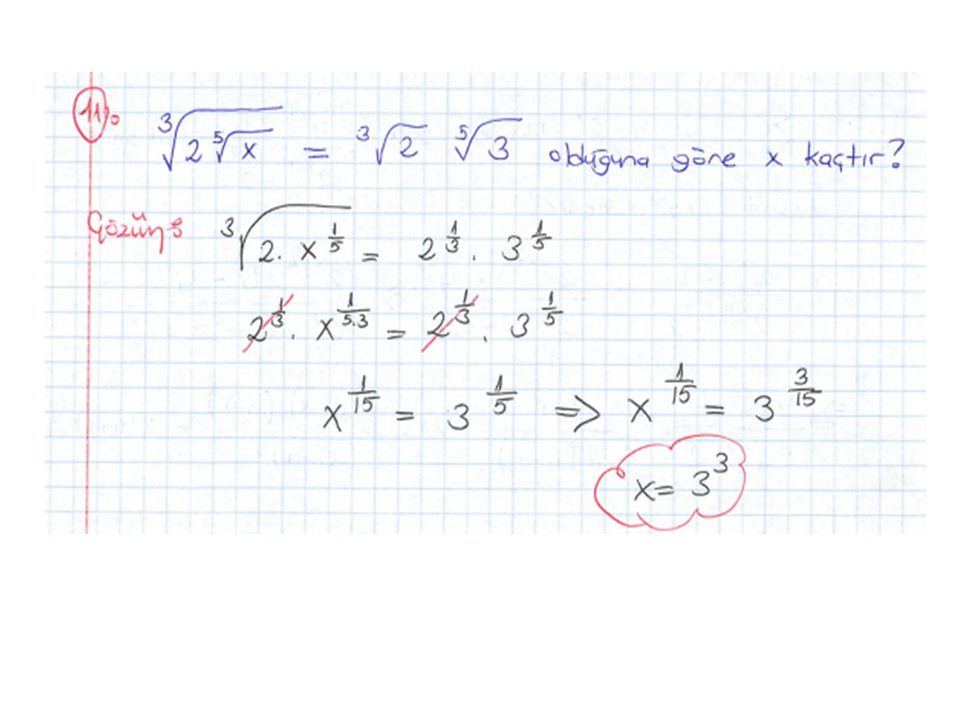 11. ∛(2 ⁵√x) = ∛2 ⁵√3 olduğuna göre x kaçtır?
Çözüm: ∛(2. x^(1/5)) = 2^(1/3) . 3^(1/5)
2^(1/3) . x^(1/5.3) = 2^(1/3) . 3^(1/5)
x^(1/15) = 3^(1/5) => x^(1/15) = 3^(3/15)
x = 3^3